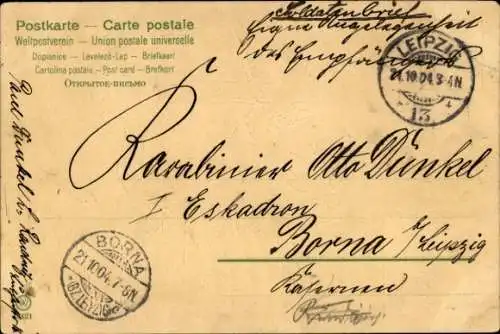 Postkarte — Carte postale
Weltpostverein — Union postale universelle
Dopisnice — Levelező-Lap — Briefkaart
Cartolina postale — Post card — Brefkort
Открытое-письмо
Soldatenbrief
Eigne Angelegenheit
des Empfängers
LEIPZIG
21.10.04. 3-4N
13
Karabinier Otto Dünkel
I Eskadron
Borna b/Leipzig
Kasernen
BORNA
21.10.04. 7-8N
(BZ. LEIPZIG)
Paul Dünkel